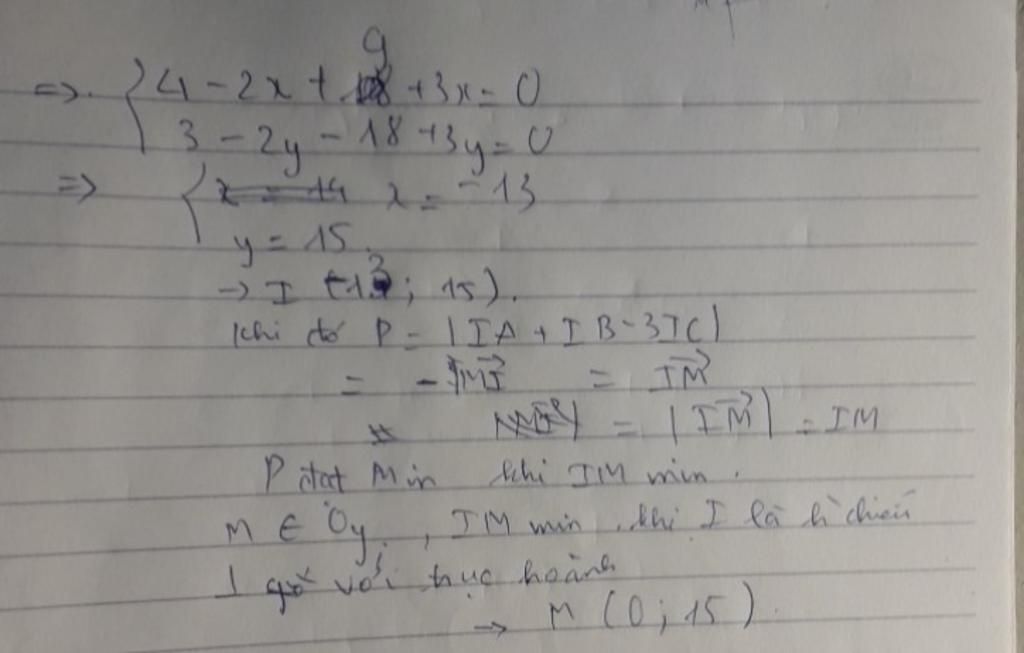 9
=> { 4 - 2x + 18 + 3x = 0
3 - 2y - 18 + 3y = 0
=> { x = 14 x = -13
y = 15.
→ I (-13; 15).
khi đó P = |IA + IB - 3IC|
= - MI = IM
= |IM| = IM
P đạt Min khi IM min.
M ∈ Oy, IM min khi I là h chiếu
⊥ góc với trục hoành
→ M (0; 15).